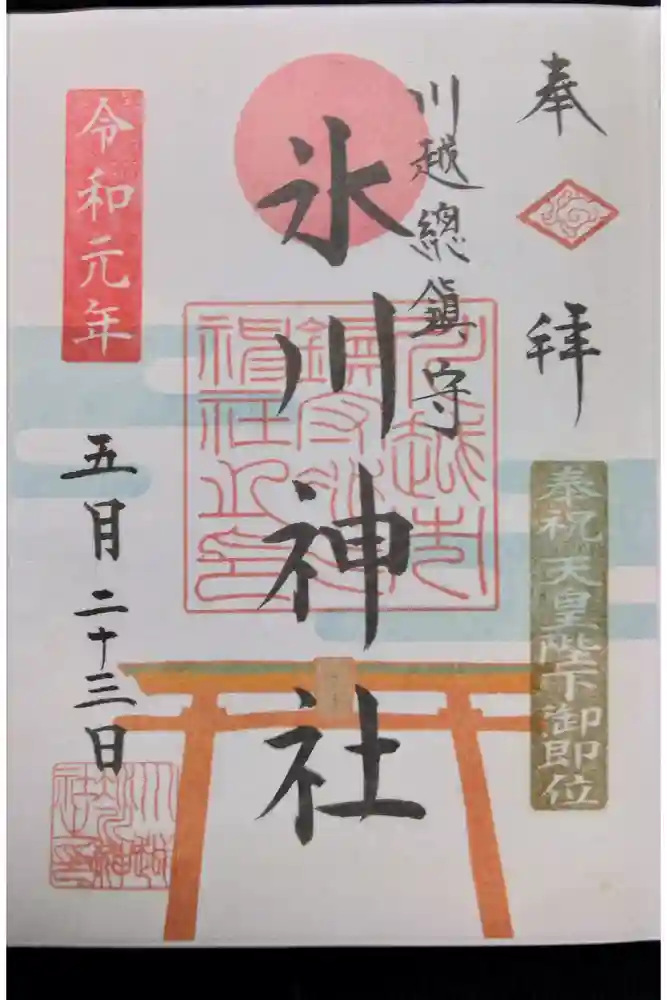 奉拜
奉祝天皇陛下御即位
川越總鎮守
氷川神社
令和元年
五月二十三日